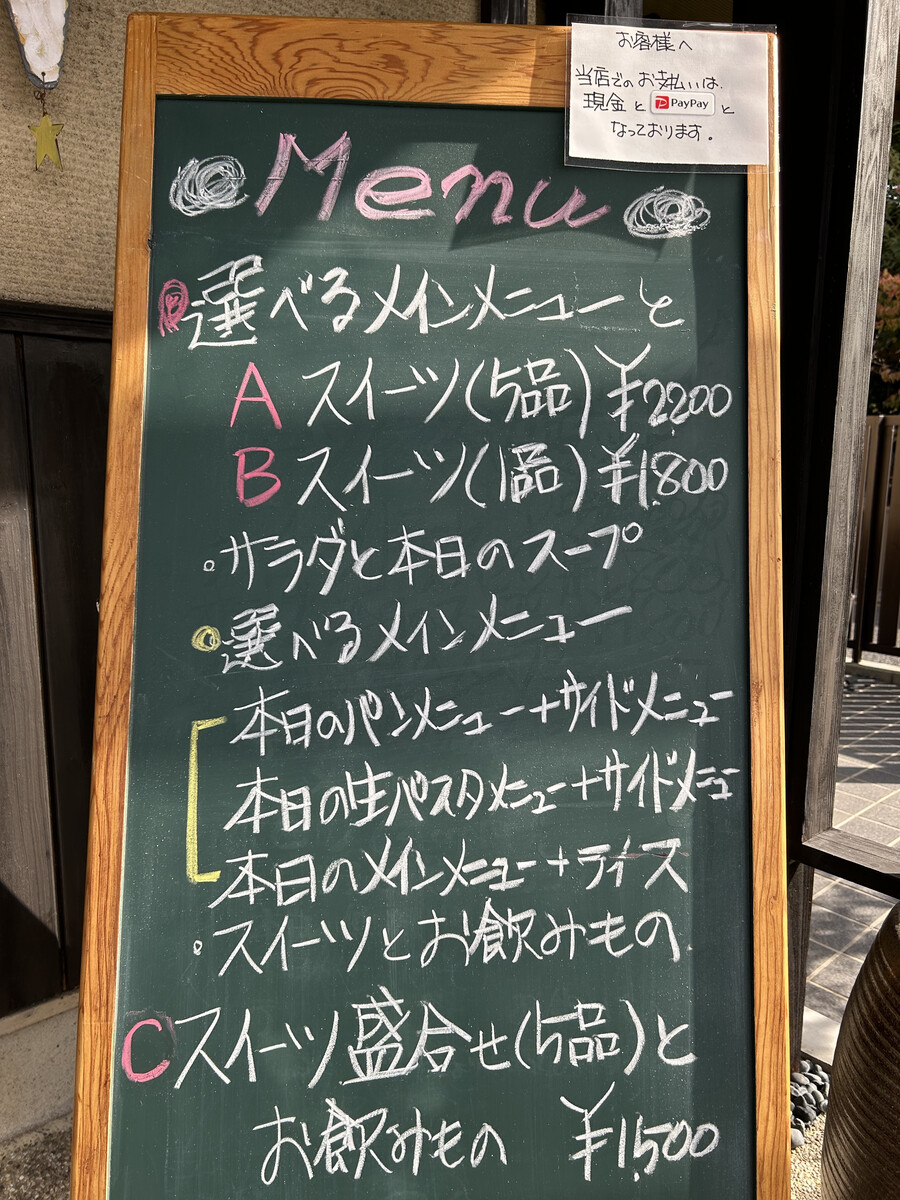 お客様へ
当店でのお支払いは、
現金と PayPay と
なっております。
Menu
選べるメインメニューと
A スイーツ(5品) ¥2200
B スイーツ(1品) ¥1,800
・サラダと本日のスープ
選べるメインメニュー
本日のパンメニュー+サイドメニュー
本日の生パスタメニュー+サイドメニュー
本日のメインメニュー+ライス
・スイーツとお飲みもの
C スイーツ盛合せ(5品)と
お飲みもの ¥1,500